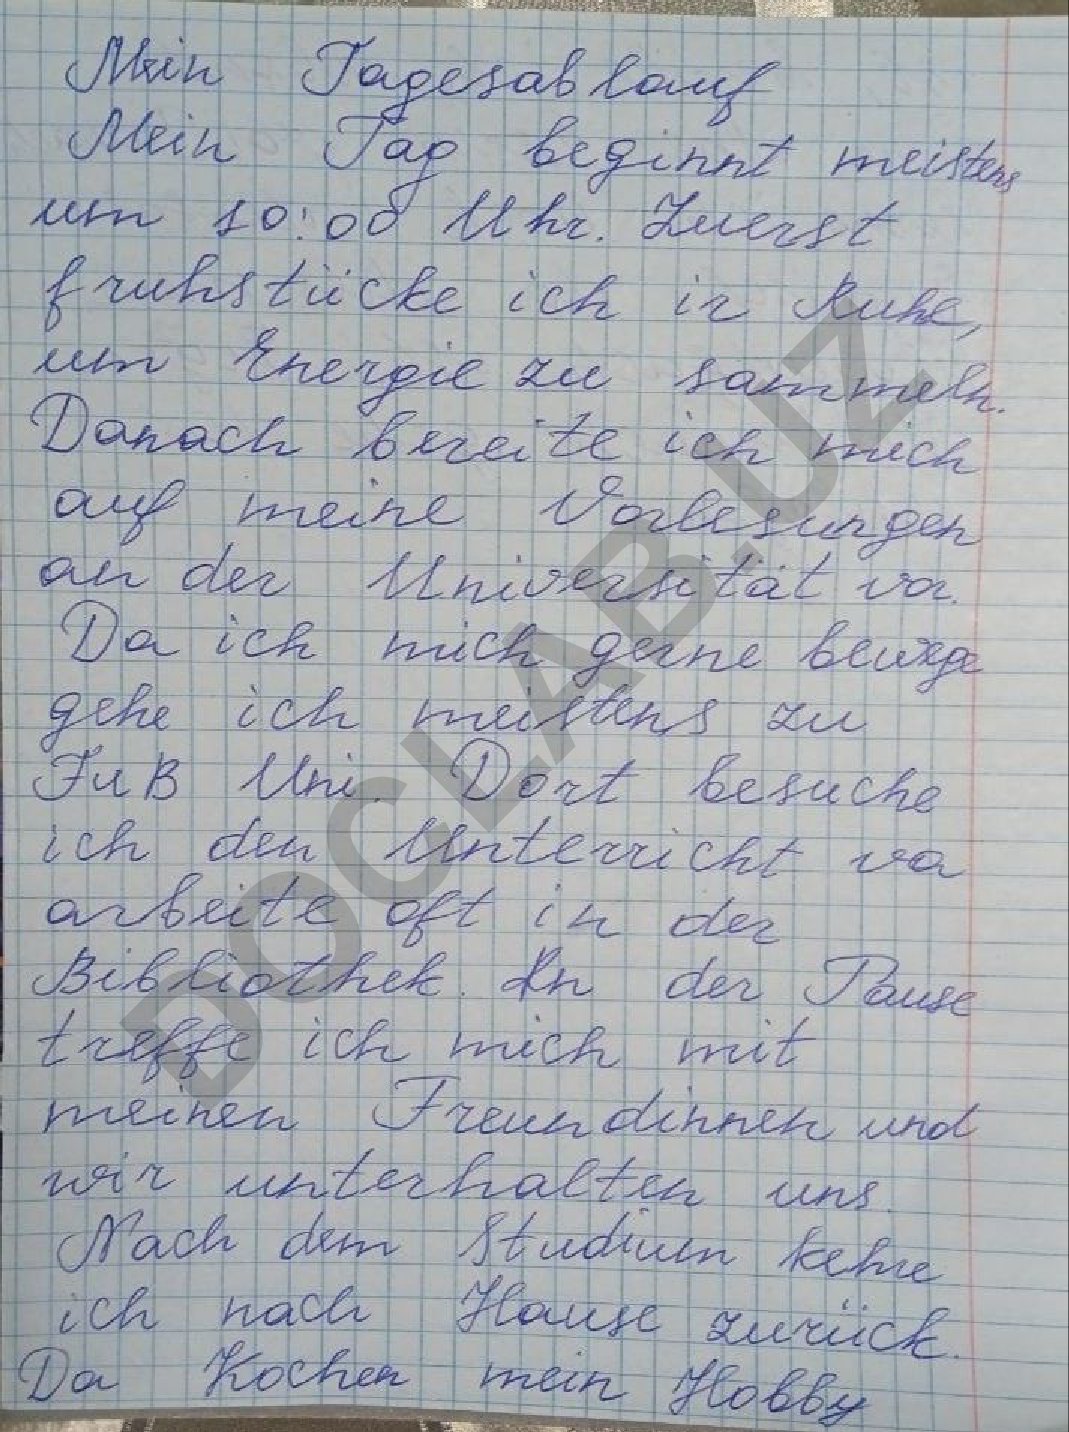 Mein Tagesablauf
Mein Tag beginnt meistens
um 10:00 Uhr. Zuerst
fruhstücke ich in Ruhe,
um Energie zu sammeln.
Danach bereite ich mich
auf meine Vorlesungen
an der Universität vor.
Da ich mich gerne bewege
gehe ich meistens zu
FuB Uni. Dort besuche
ich den Unterricht
arbeite oft in der
Bibliothek. In der Pause
treffe ich mich mit
meinen Freundinnen und
wir unterhalten uns.
Nach dem Studium kehre
ich nach Hause zurück.
Da Kochen mein Hobby
DOCLAB.UZ